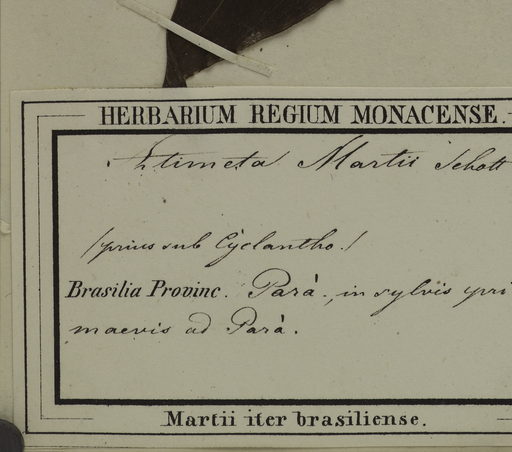 HERBARIUM REGIUM MONACENSE.
Atimeta Martii Schott
(prius sub Cyclantho.)
Brasilia Provinc. Pará. in sylvis pri
maevis ad Pará.
Martii iter brasiliense.